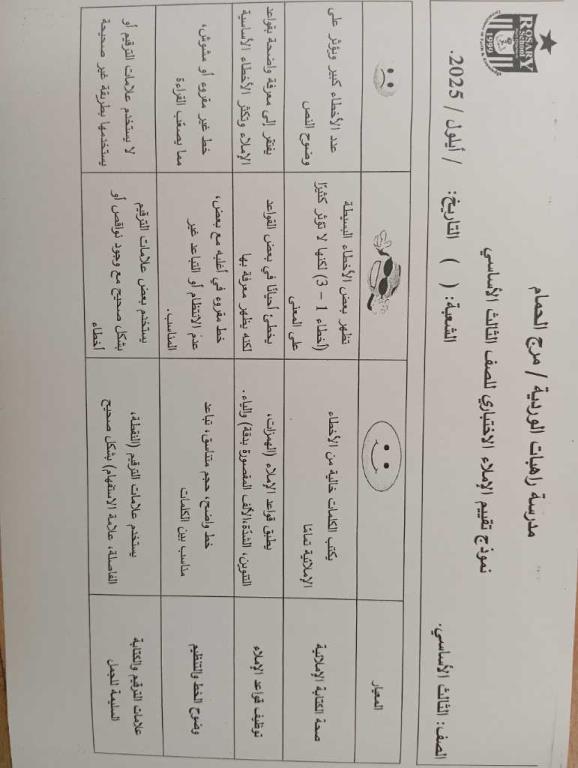 ROSARY
School
1999
مدرسة راهبات الوردية / مرج الحمام
نموذج تقييم الإملاء الاختباري للصف الثالث الأساسي
الصف: الثالث الأساسي.
الشعبة: ( )
التاريخ: / أيلول / 2025.
المعيار
صحة الكتابة الإملائية
يكتب الكلمات خالية من الأخطاء
الإملائية تمامًا
تظهر بعض الأخطاء البسيطة
(أخطاء 1 – 3) لكنها لا تؤثر كثيرًا
على المعنى
عدد الأخطاء كبير ويؤثر على
وضوح النص
توظيف قواعد الإملاء
يطبق قواعد الإملاء (الهمزات،
التنوين، الشدّة،الألف المقصورة بدقة) والياء.
يخطئ أحيانًا في بعض القواعد
لكنه يظهر معرفة بها
يفتقر إلى معرفة واضحة بقواعد
الإملاء وتكثر الأخطاء الأساسية
وضوح الخط والتنظيم
خط واضح، حجم متناسق، تباعد
مناسب بين الكلمات
خط مقروء في أغلبه مع بعض،
عدم الانتظام أو التباعد غير
المناسب.
خط غير مقروء أو مشوش،
مما يصعّب القراءة
علامات الترقيم والكتابة
السليمة للجمل
يستخدم علامات الترقيم (النقطة،
الفاصلة، علامة الاستفهام) بشكل صحيح
يستخدم بعض علامات الترقيم
بشكل صحيح مع وجود نواقص أو
أخطاء
لا يستخدم علامات الترقيم أو
يستخدمها بطريقة غير صحيحة